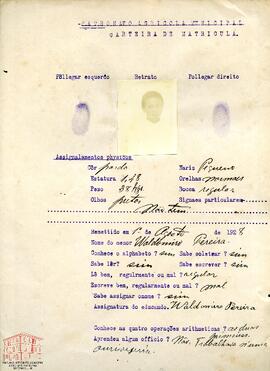 PATRONATO AGRICOLA MUNICIPAL
CARTEIRA DE MATRICULA.
Póllegar esquerdo Retrato Pollegar direito
Assignalamentos physicos
Côr parda Nariz Pequeno
Estatura 1,48 Orelhas
Peso 38 Kgs. Bocca regular
Olhos pretos Signaes particulares
Não tem
Remettido em 1º de Agosto de 1928
Nome do menor Waldomiro Pereira.
Conhece o alphabeto ? sim Sabe soletrar ? sim
Sabe lêr? sim Sabe escrever ? sim
Lê bem, regulrmente ou mal ? regular
Escreve bem, regularmente ou mal ? mal
Sabe assignar o nome ? sim
Assignatura do educando. Waldomiro Pereira
Conhece as quatro operações arithmeticas ? as duas
primeiras.
Aprendeu algum officio ? Não. Trabalhava numa
ourivesaria.